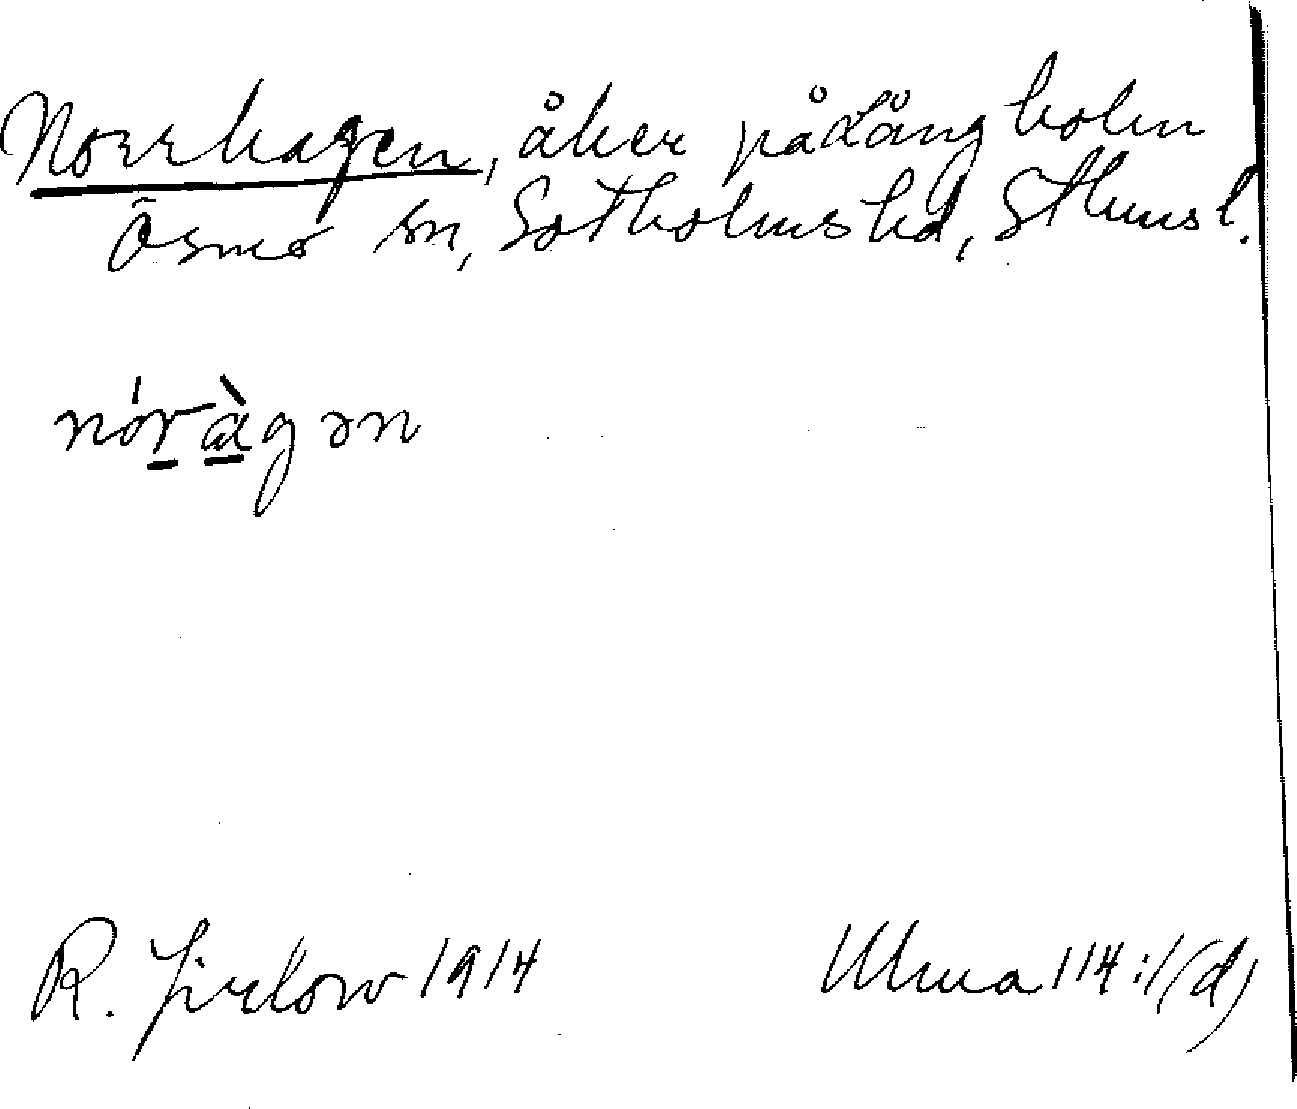 Norrhagen, åker på Långholm
Ösmo sn, Sotholms hd, Sthms l.
nóràgən
R. Jirlow 1914
Ulma 114:1(d)